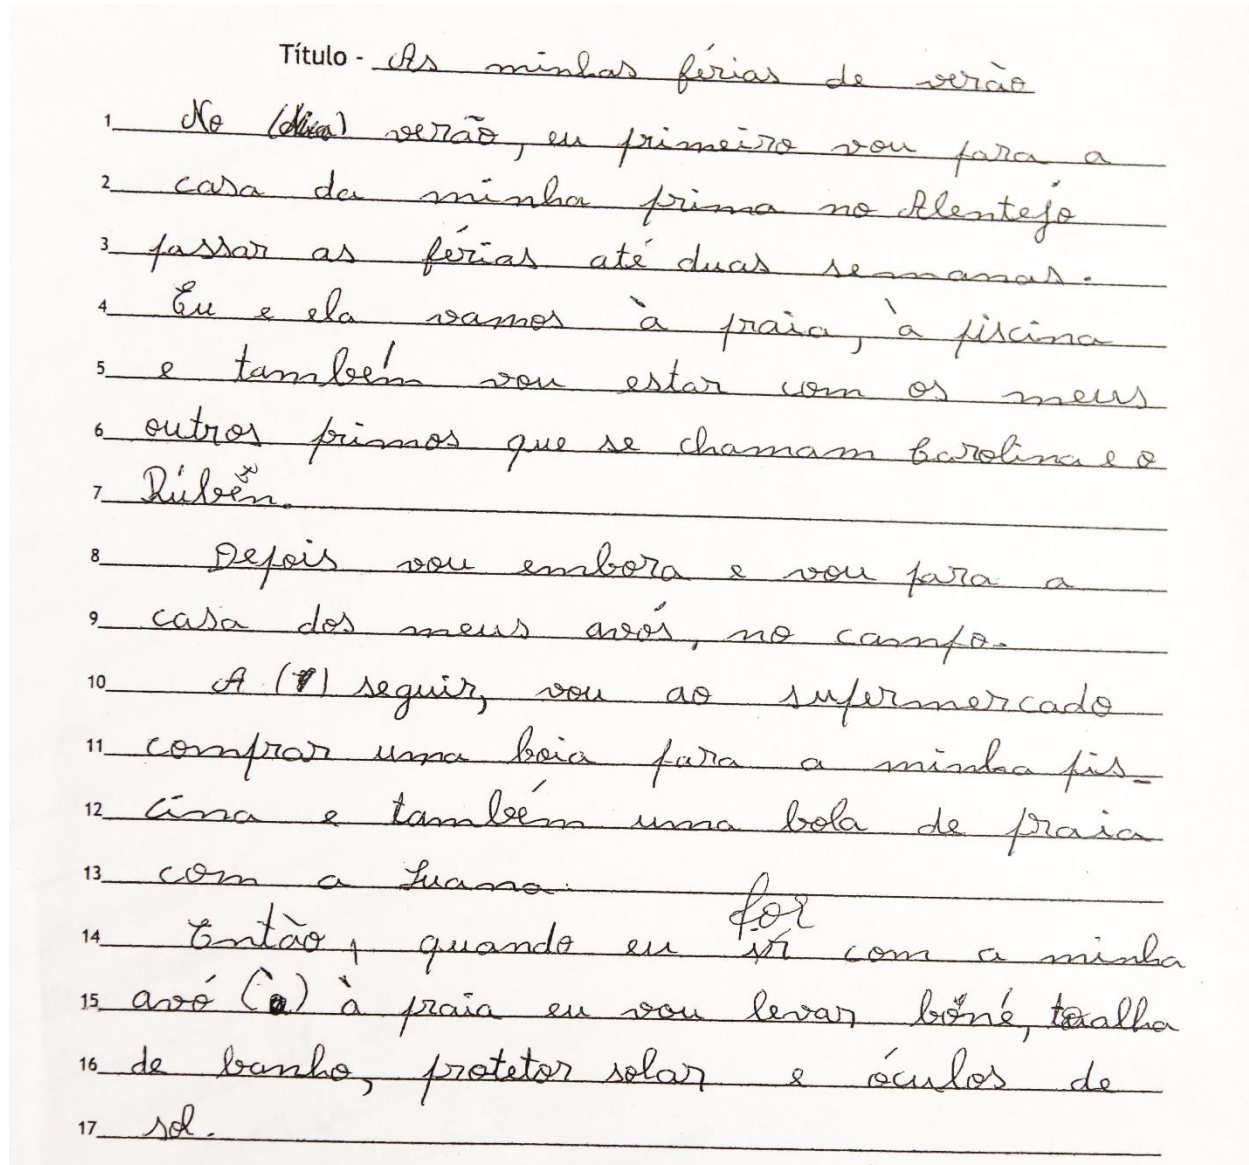 Título - As minhas férias de verão
1 No verão, eu primeiro vou para a
2 casa da minha prima no Alentejo
3 passar as férias até duas semanas.
4 Eu e ela vamos à praia, à piscina
5 e também vou estar com os meus
6 outros primos que se chamam Carolina e o
7 Rúben.
8 Depois vou embora e vou para a
9 casa dos meus avós, no campo.
10 A () seguir, vou ao supermercado
11 comprar uma boia para a minha pis-
12 cina e também uma bola de praia
13 com a Luana.
for
14 Então, quando eu ir com a minha
15 avó (à) à praia eu vou levar boné, toalha
16 de banho, protetor solar e óculos de
17 sol.